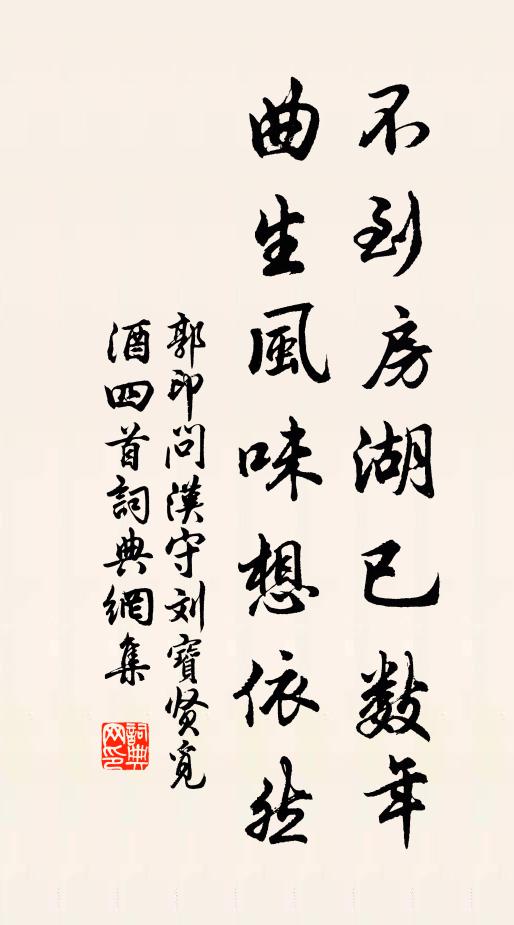 不到房湖已数年
曲生風味想依然
郭印問漢守刘寶贤覓
酒四首詞典網集
詞典網印